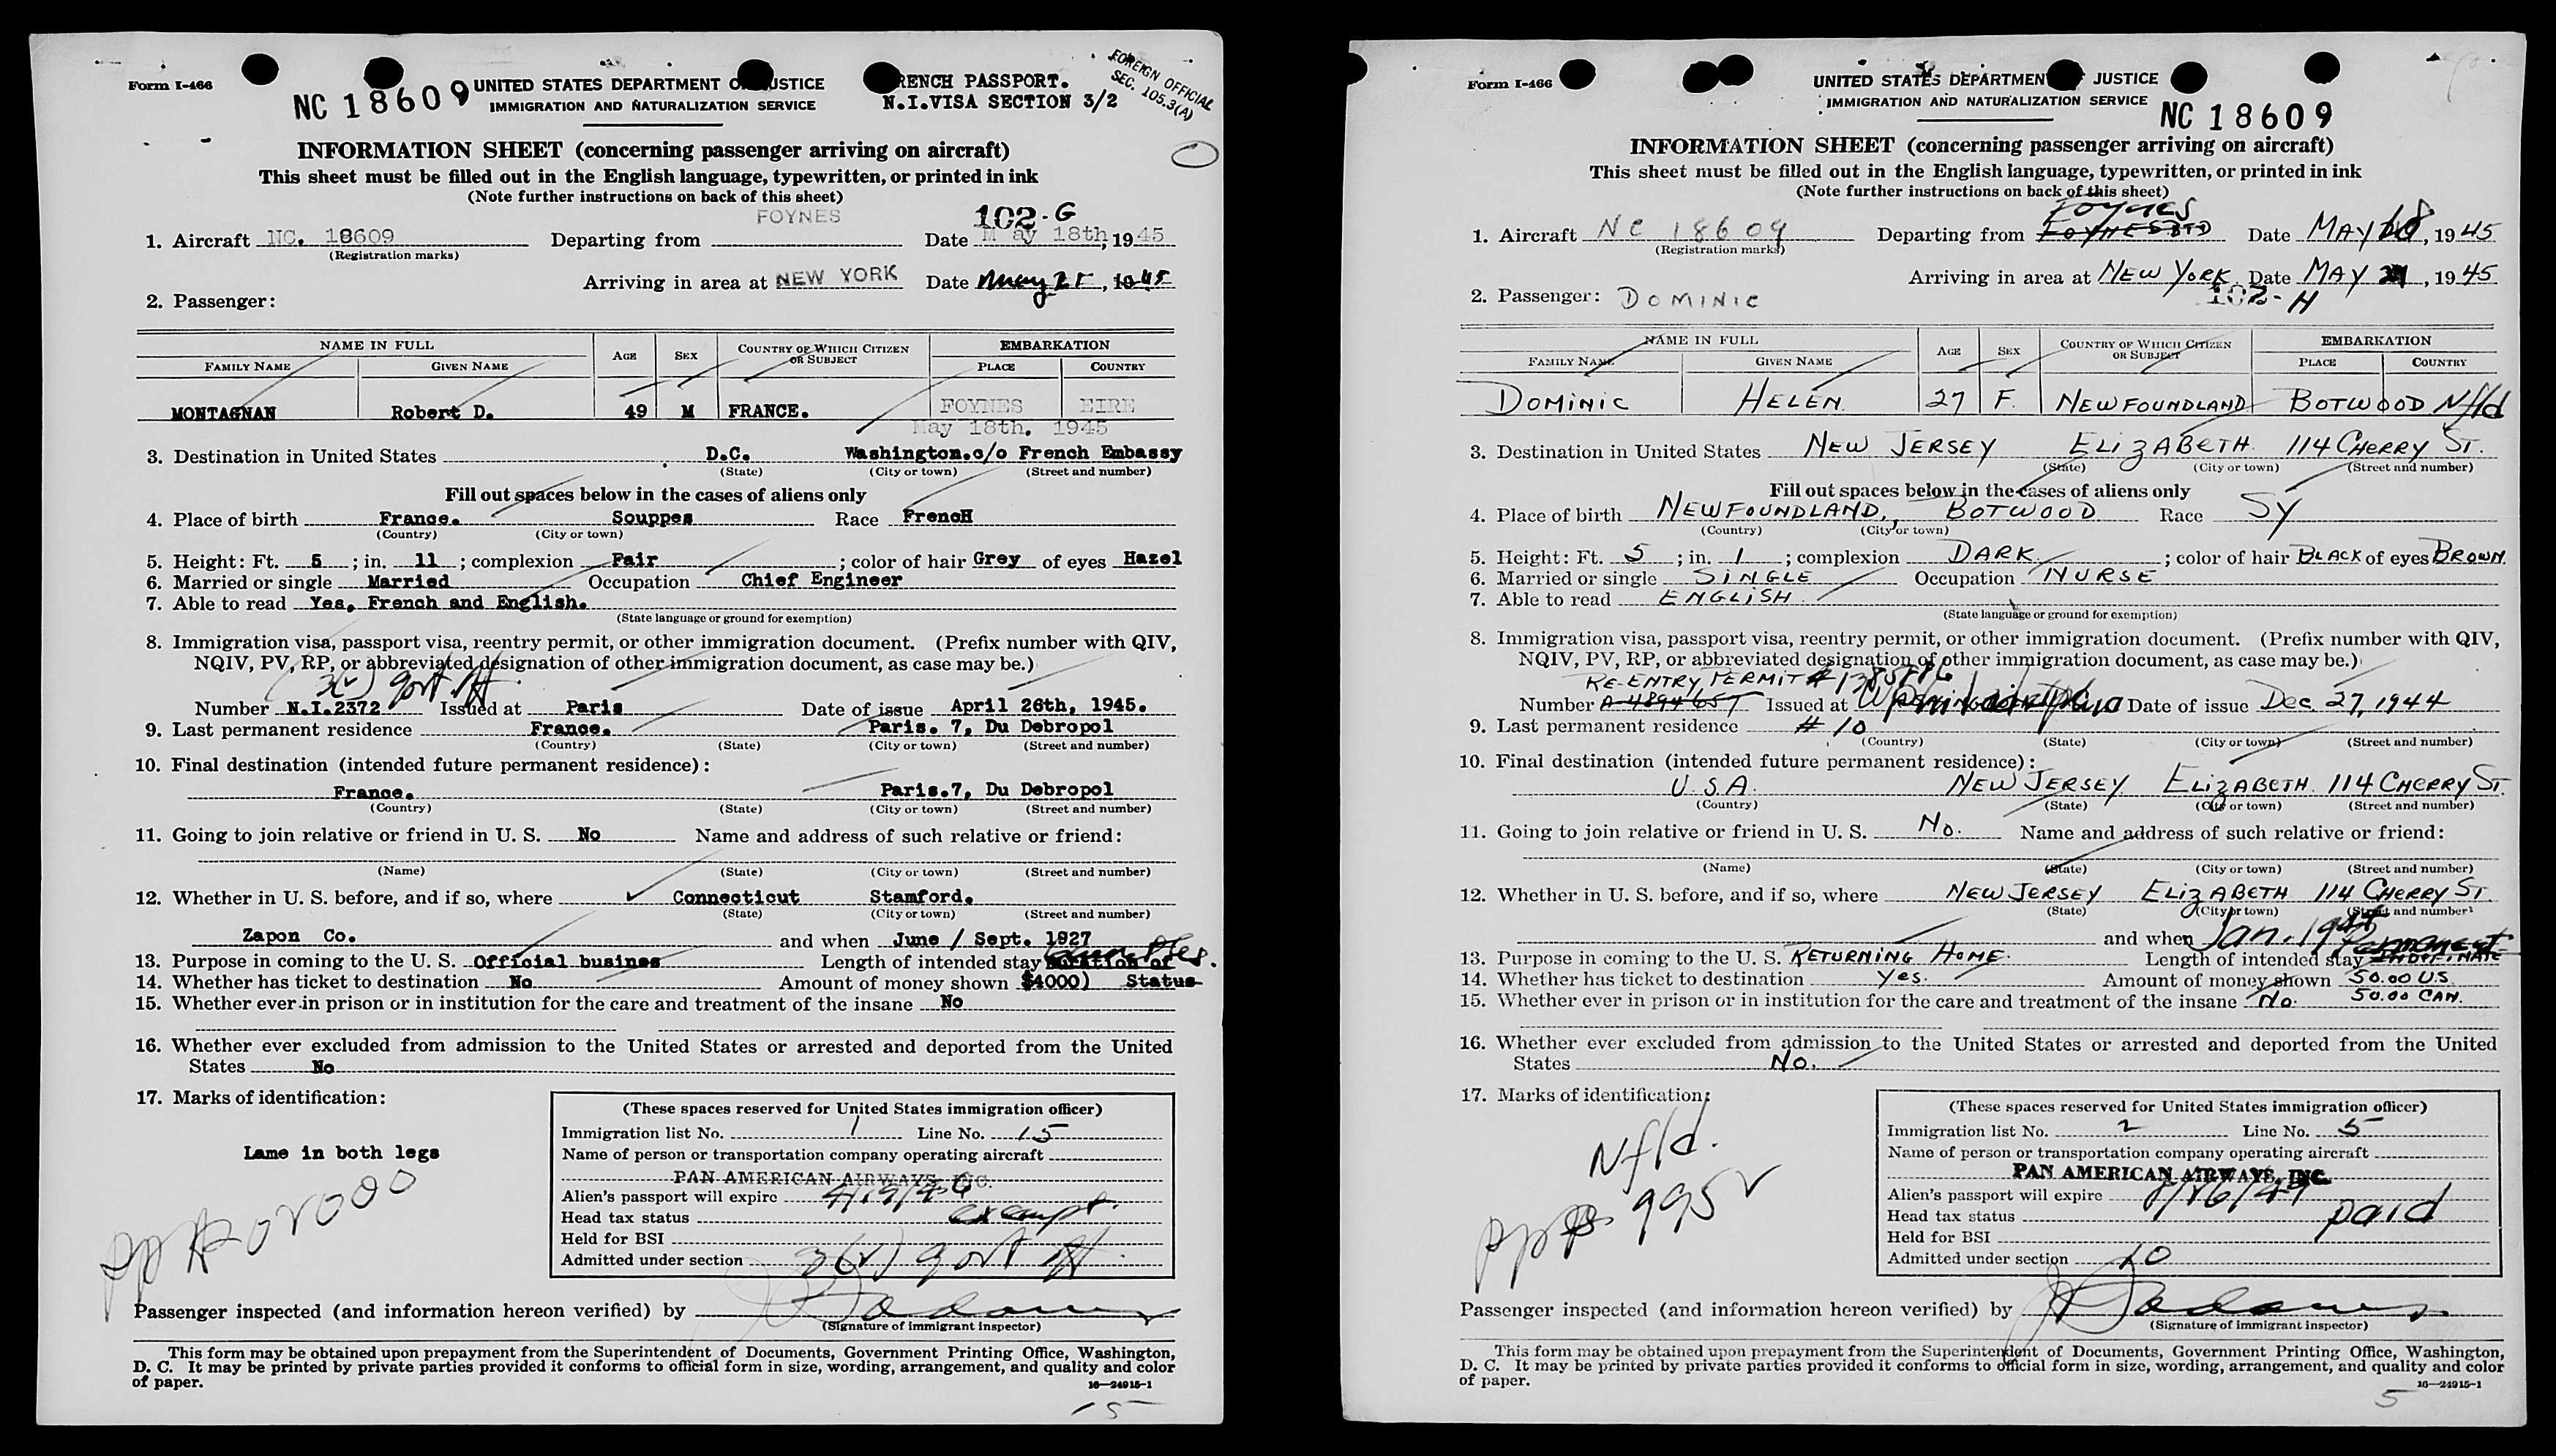 Form I-466
NC 18609
UNITED STATES DEPARTMENT O USTICE
IMMIGRATION AND NATURALIZATION SERVICE
RENCH PASSPORT.
N.I.VISA SECTION 3/2
FOREIGN OFFICIAL
SEC. 105.3(A)
INFORMATION SHEET (concerning passenger arriving on aircraft)
This sheet must be filled out in the English language, typewritten, or printed in ink
(Note further instructions on back of this sheet)
FOYNES 102-G
1. Aircraft NC. 18609 Departing from Date May 18th, 1945
(Registration marks)
Arriving in area at NEW YORK Date May 21, 1945
2. Passenger:
NAME IN FULL AGE SEX COUNTRY OF WHICH CITIZEN OR SUBJECT EMBARKATION
FAMILY NAME GIVEN NAME PLACE COUNTRY
MONTAGNAN Robert D. 49 M FRANCE. FOYNES EIRE
May 18th. 1945
3. Destination in United States D.C. Washington.c/o French Embassy
(State) (City or town) (Street and number)
Fill out spaces below in the cases of aliens only
4. Place of birth France. Souppes Race FrencH
(Country) (City or town)
5. Height: Ft. 5 ; in. 11 ; complexion Fair ; color of hair Grey of eyes Hazel
6. Married or single Married Occupation Chief Engineer
7. Able to read Yes, French and English.
(State language or ground for exemption)
8. Immigration visa, passport visa, reentry permit, or other immigration document. (Prefix number with QIV,
NQIV, PV, RP, or abbreviated designation of other immigration document, as case may be.)
Number N.I.2372 Issued at Paris Date of issue April 26th, 1945.
9. Last permanent residence France. Paris. 7, Du Debropol
(Country) (State) (City or town) (Street and number)
10. Final destination (intended future permanent residence):
France. Paris.7, Du Debropol
(Country) (State) (City or town) (Street and number)
11. Going to join relative or friend in U. S. No Name and address of such relative or friend:
(Name) (State) (City or town) (Street and number)
12. Whether in U. S. before, and if so, where Connecticut Stamford.
(State) (City or town) (Street and number)
Zapon Co. and when June / Sept. 1927
13. Purpose in coming to the U. S. Official busines Length of intended stay Duration of
14. Whether has ticket to destination No Amount of money shown $4000) Status
15. Whether ever in prison or in institution for the care and treatment of the insane No
16. Whether ever excluded from admission to the United States or arrested and deported from the United
States No
17. Marks of identification:
Lame in both legs
(These spaces reserved for United States immigration officer)
Immigration list No. 1 Line No. 15
Name of person or transportation company operating aircraft
PAN AMERICAN AIRWAYS, INC.
Alien's passport will expire 4/19/46
Head tax status exempt.
Held for BSI
Admitted under section 3(2) govt off.
Passenger inspected (and information hereon verified) by
(Signature of immigrant inspector)
This form may be obtained upon prepayment from the Superintendent of Documents, Government Printing Office, Washington,
D. C. It may be printed by private parties provided it conforms to official form in size, wording, arrangement, and quality and color
of paper.
16—24915-1
15
Form I-466
UNITED STATES DEPARTMEN JUSTICE
IMMIGRATION AND NATURALIZATION SERVICE
NC 18609
INFORMATION SHEET (concerning passenger arriving on aircraft)
This sheet must be filled out in the English language, typewritten, or printed in ink
(Note further instructions on back of this sheet)
FOYNES
1. Aircraft NC 18609 Departing from Date MAY 18, 1945
(Registration marks)
Arriving in area at NEW YORK Date MAY 21, 1945
2. Passenger: DOMINIC 102-H
NAME IN FULL AGE SEX COUNTRY OF WHICH CITIZEN OR SUBJECT EMBARKATION
FAMILY NAME GIVEN NAME PLACE COUNTRY
DOMINIC HELEN 27 F. NEWFOUNDLAND BOTWOOD Nfld
3. Destination in United States NEW JERSEY ELIZABETH 114 CHERRY ST.
(State) (City or town) (Street and number)
Fill out spaces below in the cases of aliens only
4. Place of birth NEWFOUNDLAND, BOTWOOD Race SY
(Country) (City or town)
5. Height: Ft. 5 ; in. 1 ; complexion DARK ; color of hair BLACK of eyes BROWN
6. Married or single SINGLE Occupation NURSE
7. Able to read ENGLISH.
(State language or ground for exemption)
8. Immigration visa, passport visa, reentry permit, or other immigration document. (Prefix number with QIV,
NQIV, PV, RP, or abbreviated designation of other immigration document, as case may be.)
RE-ENTRY PERMIT #
Number Issued at Date of issue Dec. 27, 1944
9. Last permanent residence # 10
(Country) (State) (City or town) (Street and number)
10. Final destination (intended future permanent residence):
U.S.A. NEW JERSEY ELIZABETH 114 CHERRY ST.
(Country) (State) (City or town) (Street and number)
11. Going to join relative or friend in U. S. No. Name and address of such relative or friend:
(Name) (State) (City or town) (Street and number)
12. Whether in U. S. before, and if so, where NEW JERSEY ELIZABETH 114 CHERRY ST.
(State) (City or town) (Street and number)
and when Jan. 1945
Permanent
13. Purpose in coming to the U. S. RETURNING HOME. Length of intended stay INDEFINATE
14. Whether has ticket to destination Yes. Amount of money shown 50.00 U.S.
15. Whether ever in prison or in institution for the care and treatment of the insane No. 50.00 CAN.
16. Whether ever excluded from admission to the United States or arrested and deported from the United
States No.
17. Marks of identification:
Nfld.
995
(These spaces reserved for United States immigration officer)
Immigration list No. 2 Line No. 5
Name of person or transportation company operating aircraft
PAN AMERICAN AIRWAYS, INC.
Alien's passport will expire
Head tax status paid
Held for BSI
Admitted under section 10
Passenger inspected (and information hereon verified) by
(Signature of immigrant inspector)
This form may be obtained upon prepayment from the Superintendent of Documents, Government Printing Office, Washington,
D. C. It may be printed by private parties provided it conforms to official form in size, wording, arrangement, and quality and color
of paper.
16—24915-1
5